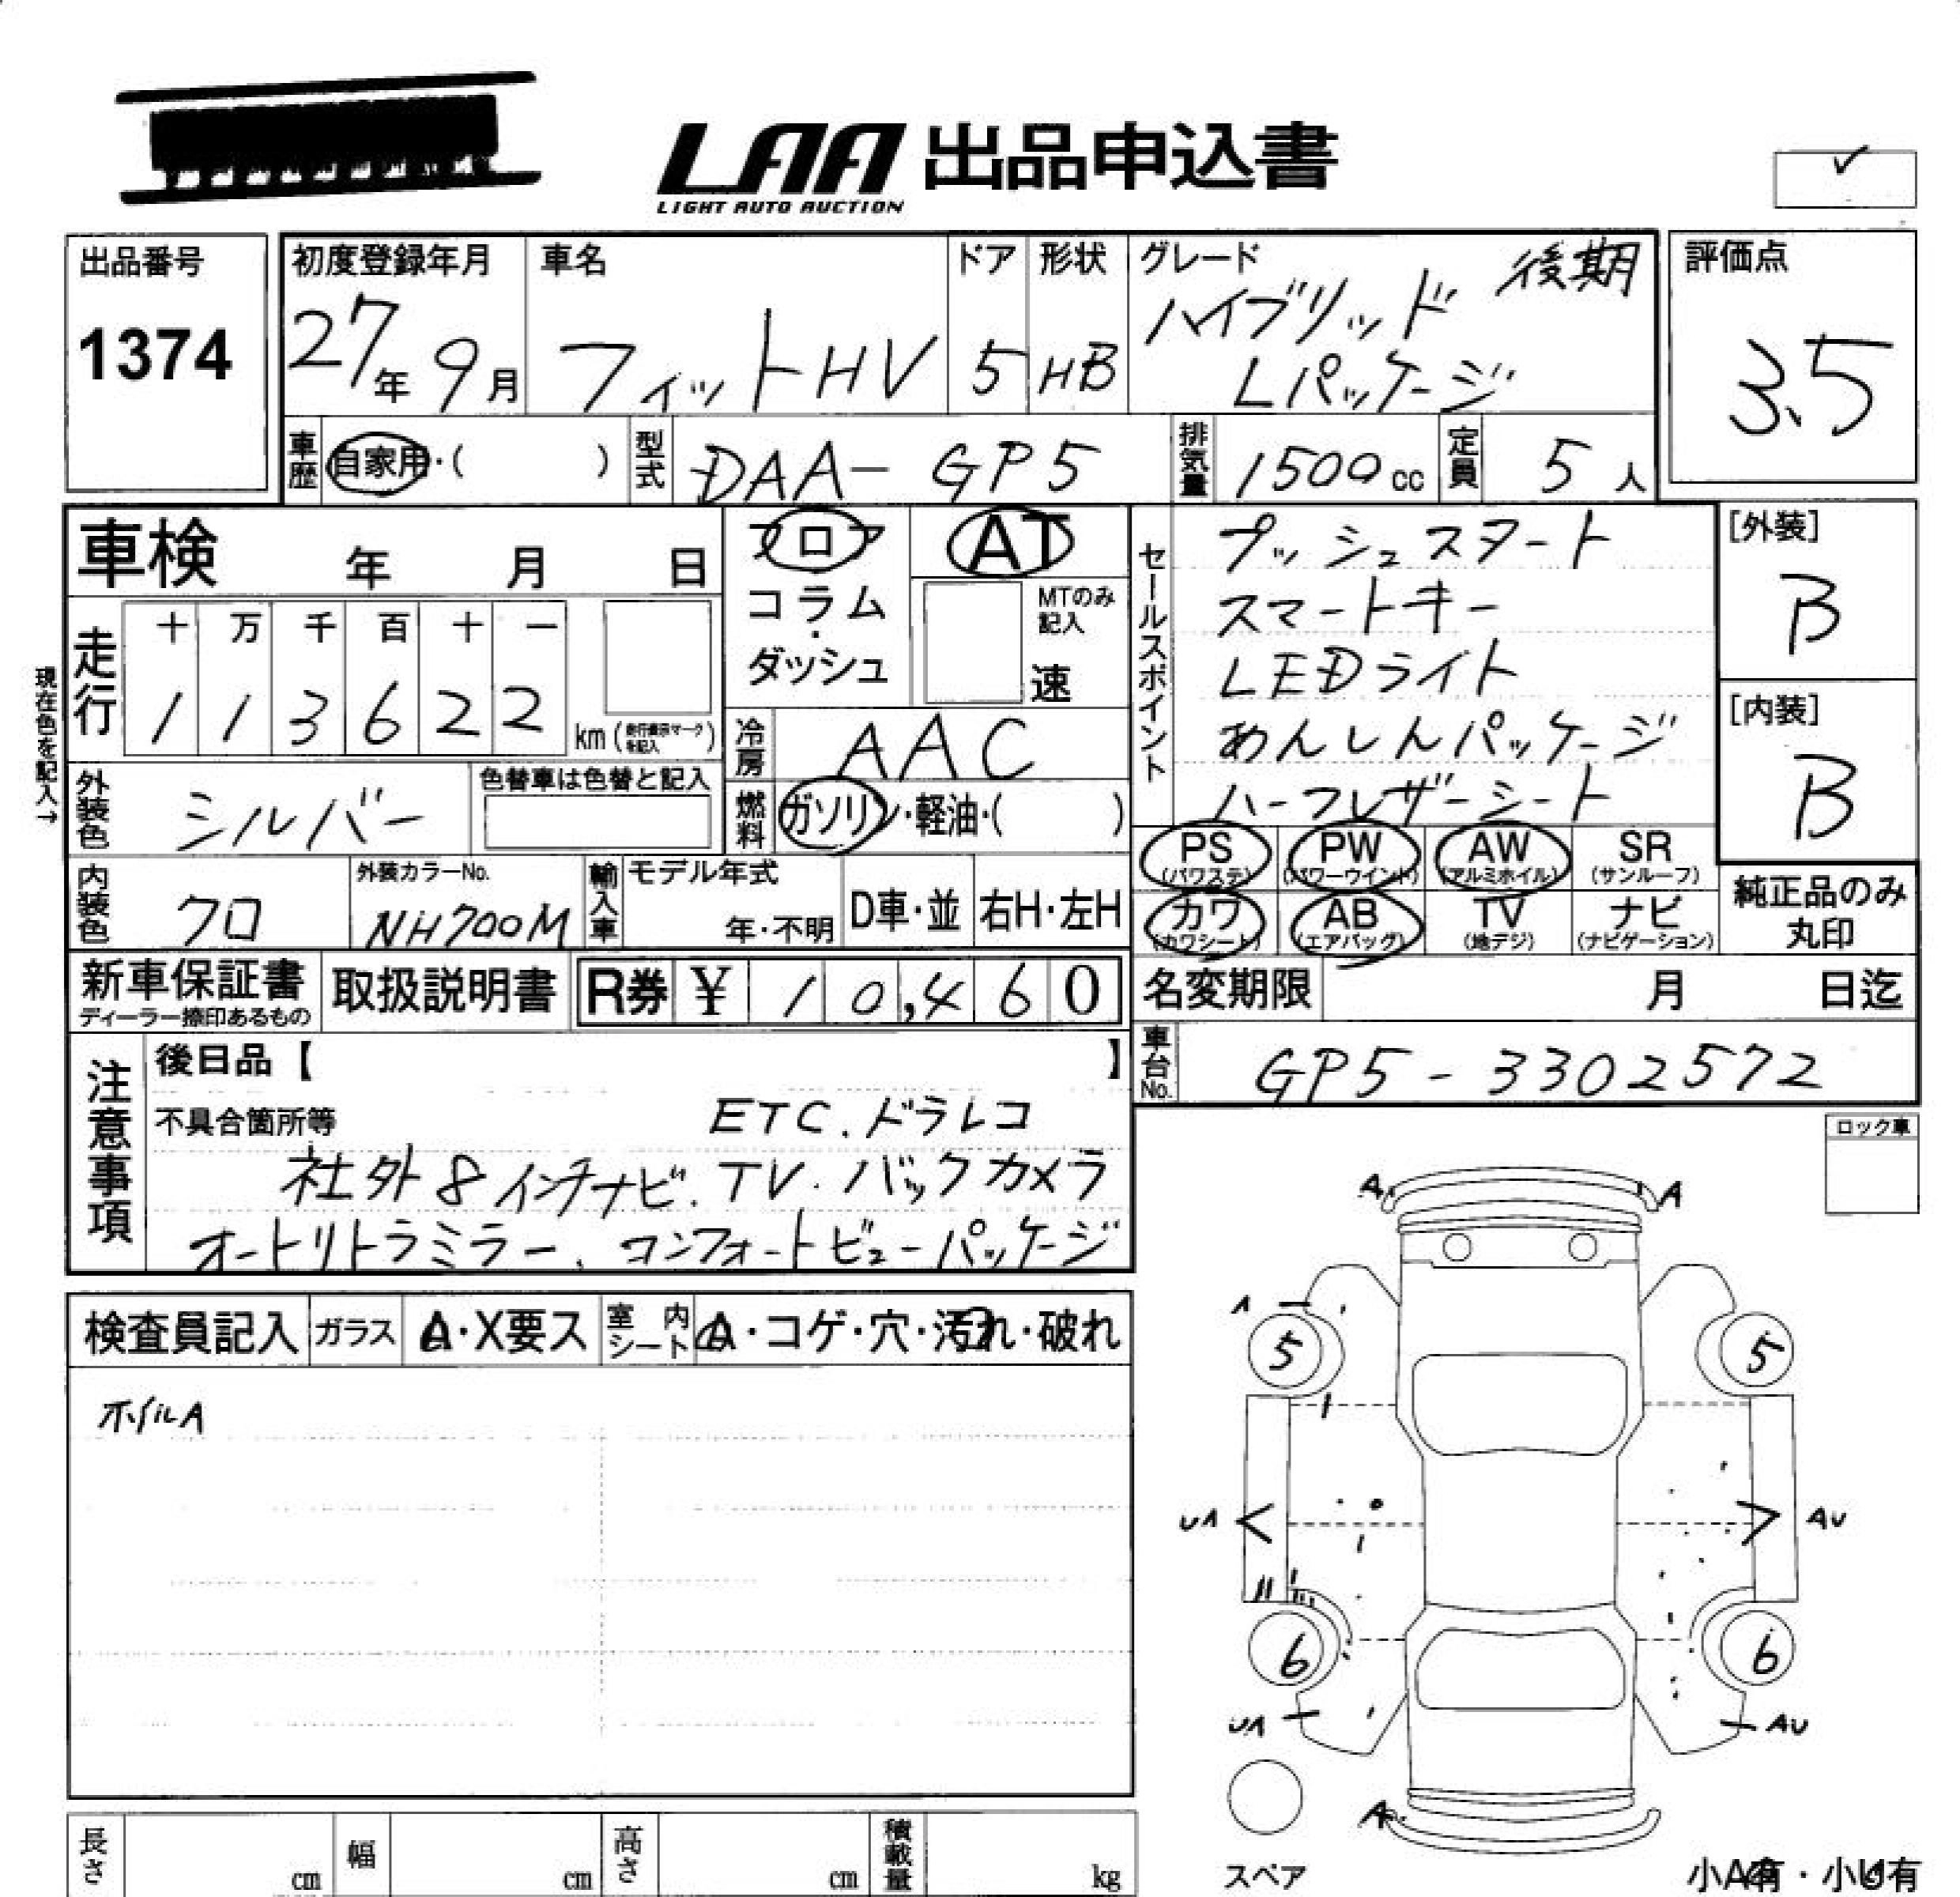 LAA 出品申込書
LIGHT AUTO AUCTION
✓
出品番号
1374
初度登録年月
27年 9月
車名
フィットHV
ドア
5
形状
HB
グレード 後期
ハイブリッド
Lパッケージ
評価点
3.5
車歴 自家用・( )
型式 DAA-GP5
排気量 1500cc
定員 5人
車検 年 月 日
フロア
コラム・
ダッシュ
AT
MTのみ記入
速
走行
十 万 千 百 十 一
1 1 3 6 2 2 km
現在色を記入→
冷房 AAC
外装色 シルバー
色替車は色替と記入
燃料 ガソリン・軽油・( )
セールスポイント
プッシュスタート
スマートキー
LEDライト
あんしんパッケージ
ハーフレザーシート
[外装]
B
[内装]
B
PS (パワステ) PW (パワーウインド) AW (アルミホイル) SR (サンルーフ)
カワ (カワシート) AB (エアバッグ) TV (地デジ) ナビ (ナビゲーション)
純正品のみ
丸印
内装色 クロ
外装カラーNo.
NH700M
輸入車
モデル年式
年・不明
D車・並
右H・左H
新車保証書
ディーラー捺印あるもの
取扱説明書
R券 ¥ 10,460
名変期限 月 日迄
車台No. GP5-3302572
注意事項
後日品【 】
不具合箇所等 ETC.ドラレコ
社外8インチナビ.TV.バックカメラ
オートリトラミラー、コンフォートビューパッケージ
ロック車
検査員記入
ガラス A・X要ス
室内シート A・コゲ・穴・汚れ・破れ
A A
A
5 5
UA AU
6 6
UA AU
A
スペア
小A有・小U有
長さ cm
幅 cm
高さ cm
積載量 kg